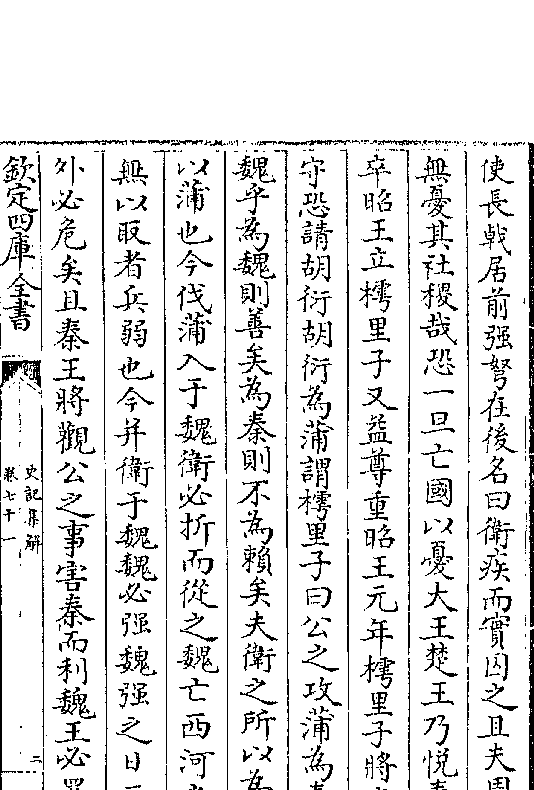 使長㦸居前强弩在後名曰衛疾而實囚之且夫周
無憂其社稷哉恐一旦亡國以憂大王楚王乃悅
卒昭王立樗里子又益尊重昭王元年樗里子將
守恐請胡衍胡衍為蒲謂樗里子曰公之攻蒲為
魏乎為魏則善矣為秦則不為頼矣夫衛之所以為
以蒲也今伐蒲入于魏衛必折而從之魏亡西河
無以取者兵弱也今并衛于魏魏必强魏强之日
外必危矣且秦王將觀公之事害秦而利魏王必
欽定四庫全書
史記集解
卷七十一
二